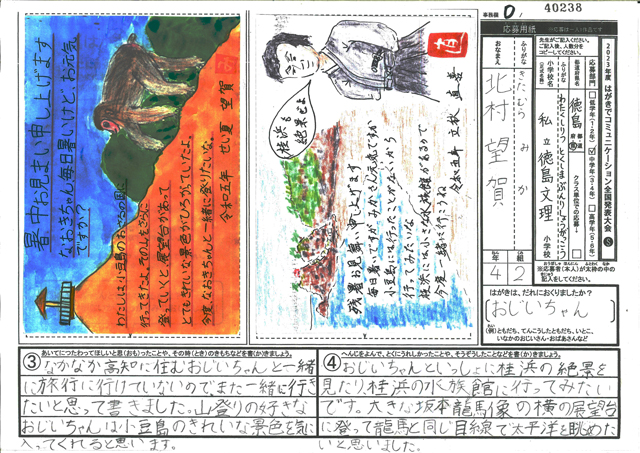 40238
事務欄
応募用紙
2023年度 はがきでコミュニケーション全国発表大会
先生がご記入ください。
ご記入後、人数分を
コピーしてください。
応募部門
低学年(1・2年)
中学年(3・4年)
高学年(5・6年)
都道府県名
徳島
クラス単位での応募
ふりがな
小学校名
(正式名称)
私立徳島文理
小学校
ふりがな
きたむら みか
おなまえ
北村 望賀
4年
2組
※応募者(本人)が太枠の中の
記入をしてください。
はがきは、だれにおくりましたか?
(おじいちゃん)
(例)ともだち、てんこうしたともだち、いとこ、
いなかのおじいさん・おばあさんなど
暑中お見まい申し上げます
なおきちゃん毎日暑いけど、お元気
ですか?
わたしは小豆島のおさるの国に
行ってきたよ。
登っていくと展望台があって
とてもきれいな景色がひろがっていたよ。
今度、なおきちゃんと一緒に登りたいな。
令和五年 せい夏 望賀
桂浜も
絶景ぜよ
残暑お見舞い申し上げます
毎日暑いですがみかさん元気ですか
小豆島には行ったことがないから
行ってみたいな
桂浜には小さな水族館があるから
今度一緒に行こうね
令和五年 文秋 直喜
③
あいてにつたわってほしいと思(おも)ったことや、その時(とき)のきもちなどを書(か)きましょう。
なかなか高知に住むおじいちゃんと一緒
に旅行に行けていないのでまた一緒に行き
たいと思って書きました。山登りの好きな
おじいちゃんは小豆島のきれいな景色を気に
入ってくれると思います。
④
へんじをよんで、とくにうれしかったことや、そうぞうしたことなどを書(か)きましょう。
おじいちゃんといっしょに桂浜の絶景を
見たり桂浜の水族館に行ってみたい
です。大きな坂本龍馬像の横の展望台
に登って龍馬と同じ目線で太平洋を眺めた
いと思いました。